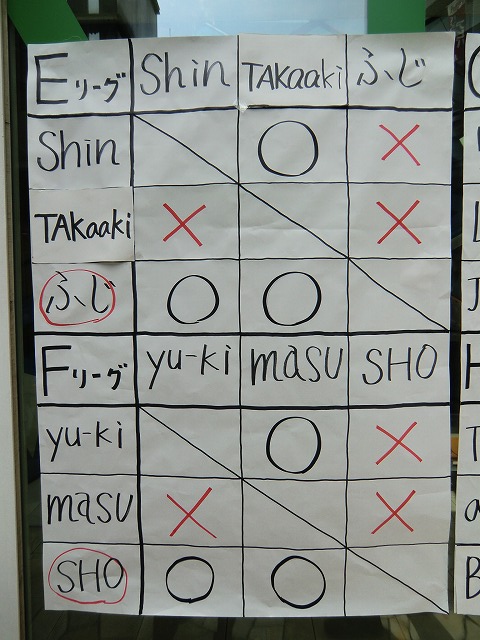 Eリーグ Shin TAKaaki ふじ
Shin ○ ×
TAKaaki × ×
ふじ ○ ○
Fリーグ yu-ki masu SHO
yu-ki ○ ×
masu × ×
SHO ○ ○